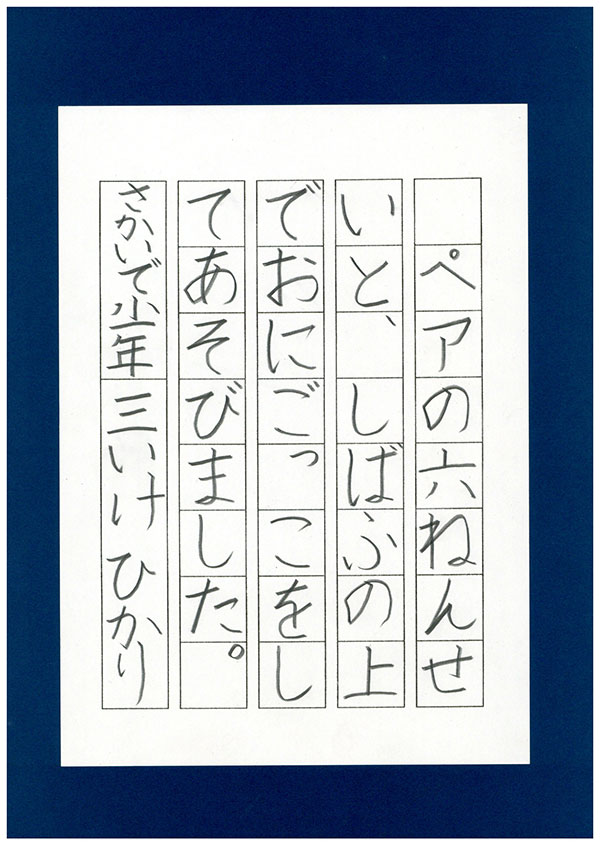 ペアの六ねんせ
いと、しばふの上
でおにごっこをし
てあそびました。
さかいで小一年 三いけ ひかり